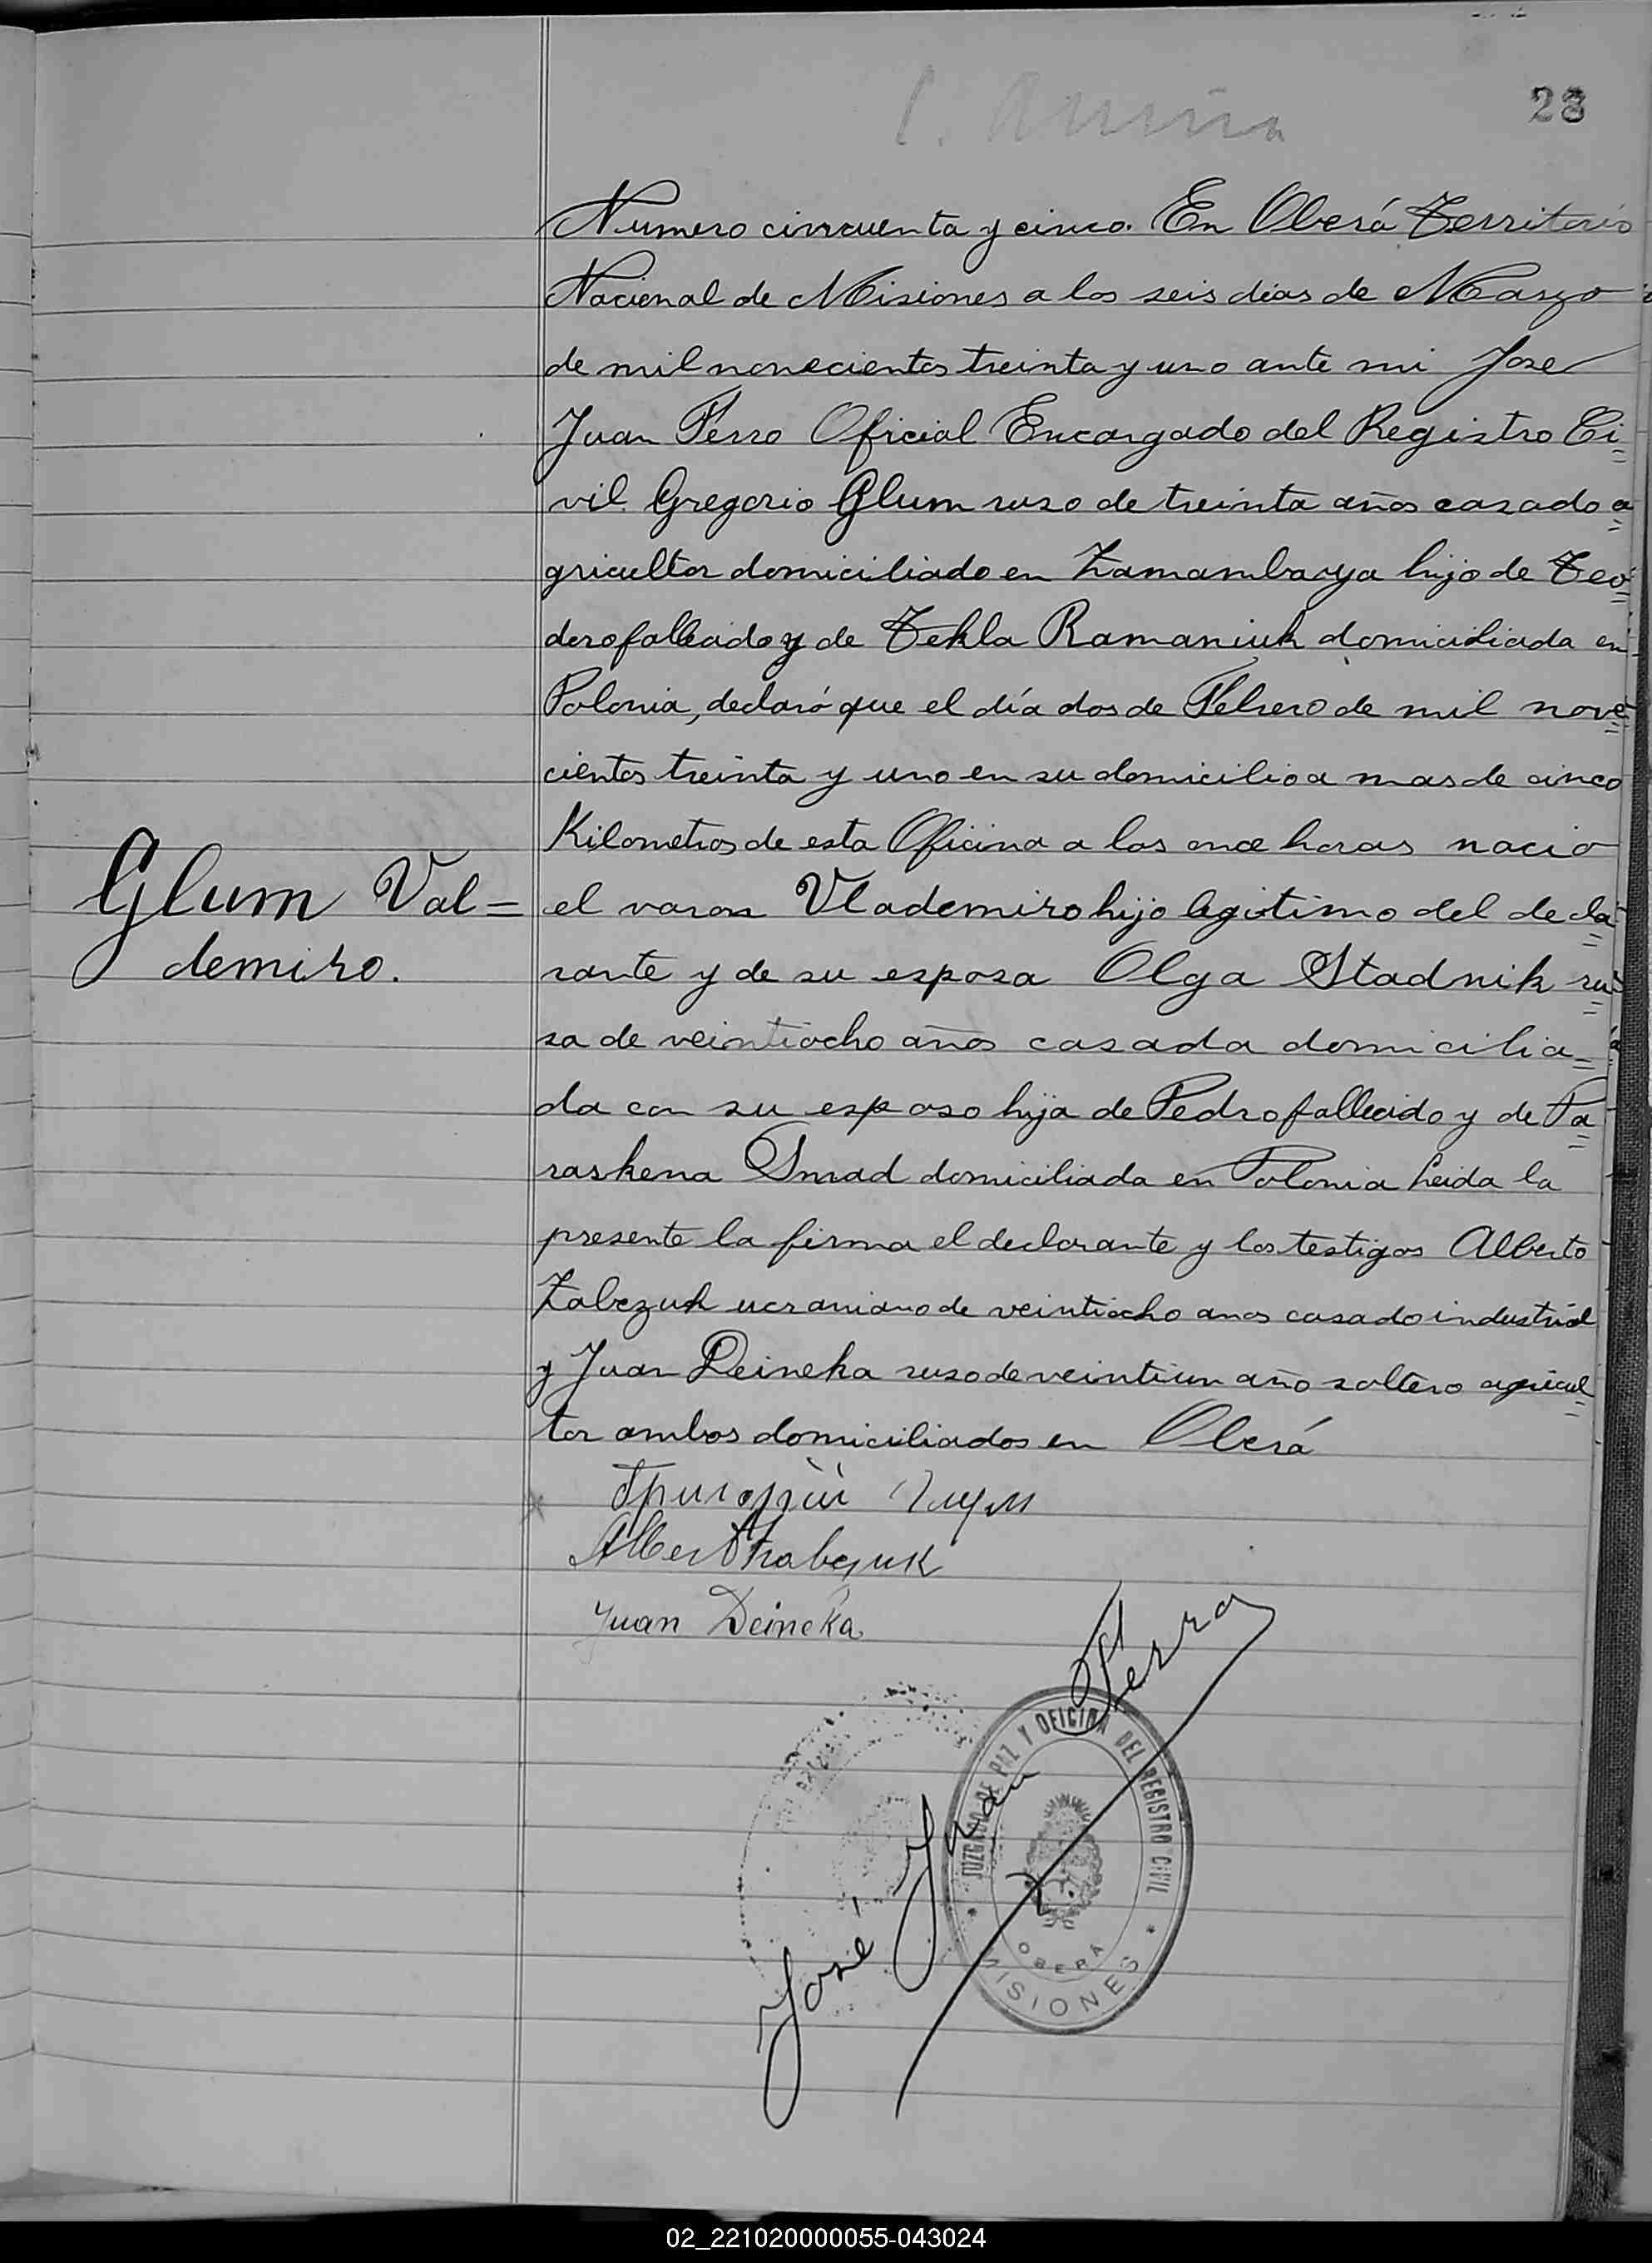 28
Numero cincuenta y cinco. En Oberá Territorio
Nacional de Misiones a los seis dias de Marzo
de mil novecientos treinta y uno ante mi Jose
Juan Ferro Oficial Encargado del Registro Ci=
vil Gregorio Glum ruso de treinta años casado a=
gricultor domiciliado en Zamambaya hijo de Teo=
doro fallecido y de Tekla Ramaniuk domiciliada en
Polonia, declaró que el día dos de Febrero de mil nove=
cientos treinta y uno en su domicilio a mas de cinco
Kilometros de esta Oficina a las once horas nacio
Glum Val=
demiro.
el varon Vlademiro hijo legitimo del decla=
rante y de su esposa Olga Stadnik ru=
sa de veintiocho años casada domicilia=
da con su esposo hija de Pedro fallecido y de Pa=
raskena Smad domiciliada en Polonia Leida la
presente la firma el declarante y los testigos Alberto
Zabezuk ucraniano de veintiocho anos casado industrial
y Juan Deineka ruso de veintiun año soltero agricul=
tor ambos domiciliados en Oberá
Григорій Глум
Juan Deineka
José Juan Ferro
JUZGADO DE PAZ Y OFICINA DEL REGISTRO CIVIL
OBERÁ
MISIONES
02_221020000055-043024